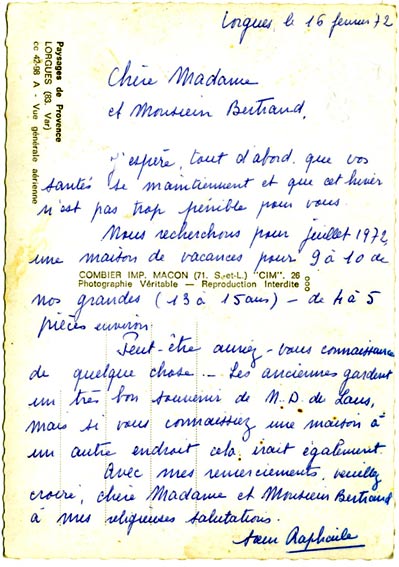 Lorgues le 16 février 72
Paysages de Provence
LORGUES (83. Var)
cc 42-98 A - Vue générale aérienne
Chère Madame
et Monsieur Bertrand,
J'espère, tout d'abord que vos
santés se maintiennent et que cet hiver
n'est pas trop pénible pour vous.
Nous recherchons pour juillet 1972,
une maison de vacances pour 9 à 10 de
COMBIER IMP. MACON (71. S.-et-L.) "CIM". 26
Photographie Véritable — Reproduction Interdite
nos grandes (13 à 15 ans) - de 4 à 5
pièces environ.
Peut-être auriez-vous connaissance
de quelque chose. - Les anciennes gardent
un très bon souvenir de N.D. de Laus,
mais si vous connaissiez une maison à
un autre endroit cela irait également.
Avec mes remerciements, veuillez
croire, chère Madame et Monsieur Bertrand
à mes religieuses salutations.
Sœur Raphaële